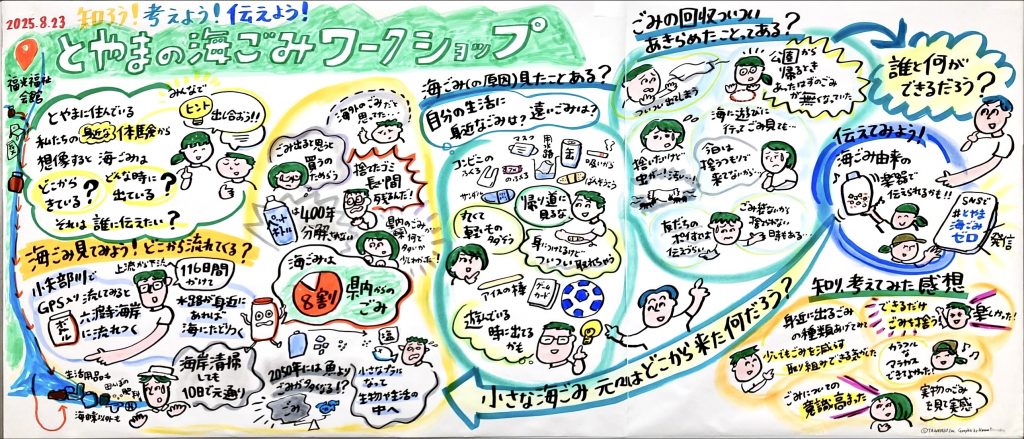 2025.8.23
知ろう!考えよう!伝えよう!
とやまの海ごみワークショップ
福光福祉
会館
とやまに住んでいる
私たちの身近な体験から
想像すると海ごみは
どこから
きている?
どんな時に
出ている?
それは誰に伝えたい?
みんなで
ヒント
出し合おう!!
海ごみ見てみよう!どこから流れてくる?
上流から下流へ
小矢部川で
GPS入り流してみると
ボトル
六渡寺海岸
に流れつく
116日間
かけて
水路が身近に
あれば
海にたどりつく
生活用品も
海岸清掃
しても
10日で元通り
海外のごみだと
思ってた…
ごみ出ると思って
買うの
ためらう
捨てたごみ
長い間
残るんだ!
ペット
ボトル
は400年
分解されない
海ごみは
8割
県内からの
ごみ
2050年には魚より
ごみが多くなる!?
ごみ
塩
小さなプラに
なって
生物や生活の
中へ
海ごみの(原因)見たことある?
自分の生活に
身近なごみは?遠いごみは?
コンビニの
ふくろ
マスク
吸いがら
サンダル
ばんそうこう
丸くて
軽いもの
多そう
帰り道に
見るな
身につけてるけど
ついつい取れちゃう
アイスの棒
ゲーム
カード
遊んでいる
時に出てる
かも
小さな海ごみ 元々はどこから来た何だろう?
ごみの回収ついつい
あきらめたことってある?
ついつい出てしまう
公園から
帰るとき
あったはずのごみ
が無くなっていた
捨いたいけど
虫が…!
海に遊びに
行ってごみ見ても…
今日は
捨うつもりで
来てないから…
友だちの
ポイすては
伝えづらい…
ごみ袋ないから
捨われない
時もある…
誰と何が
できるだろう?
伝えてみよう!
海ごみ由来の
楽器で
伝えられるかも!!
SNSで
#とやま
海ごみ
ゼロ
発信
知り考えてみた感想
身近に出るごみ
の種類あげてみて
少しでもごみを減らす
取り組みができる気がした
できるだけ
ごみを捨う!
カラフルな
マラカス
できてよかった!
ごみについての
意識高まった
実物のごみ
を見て実感